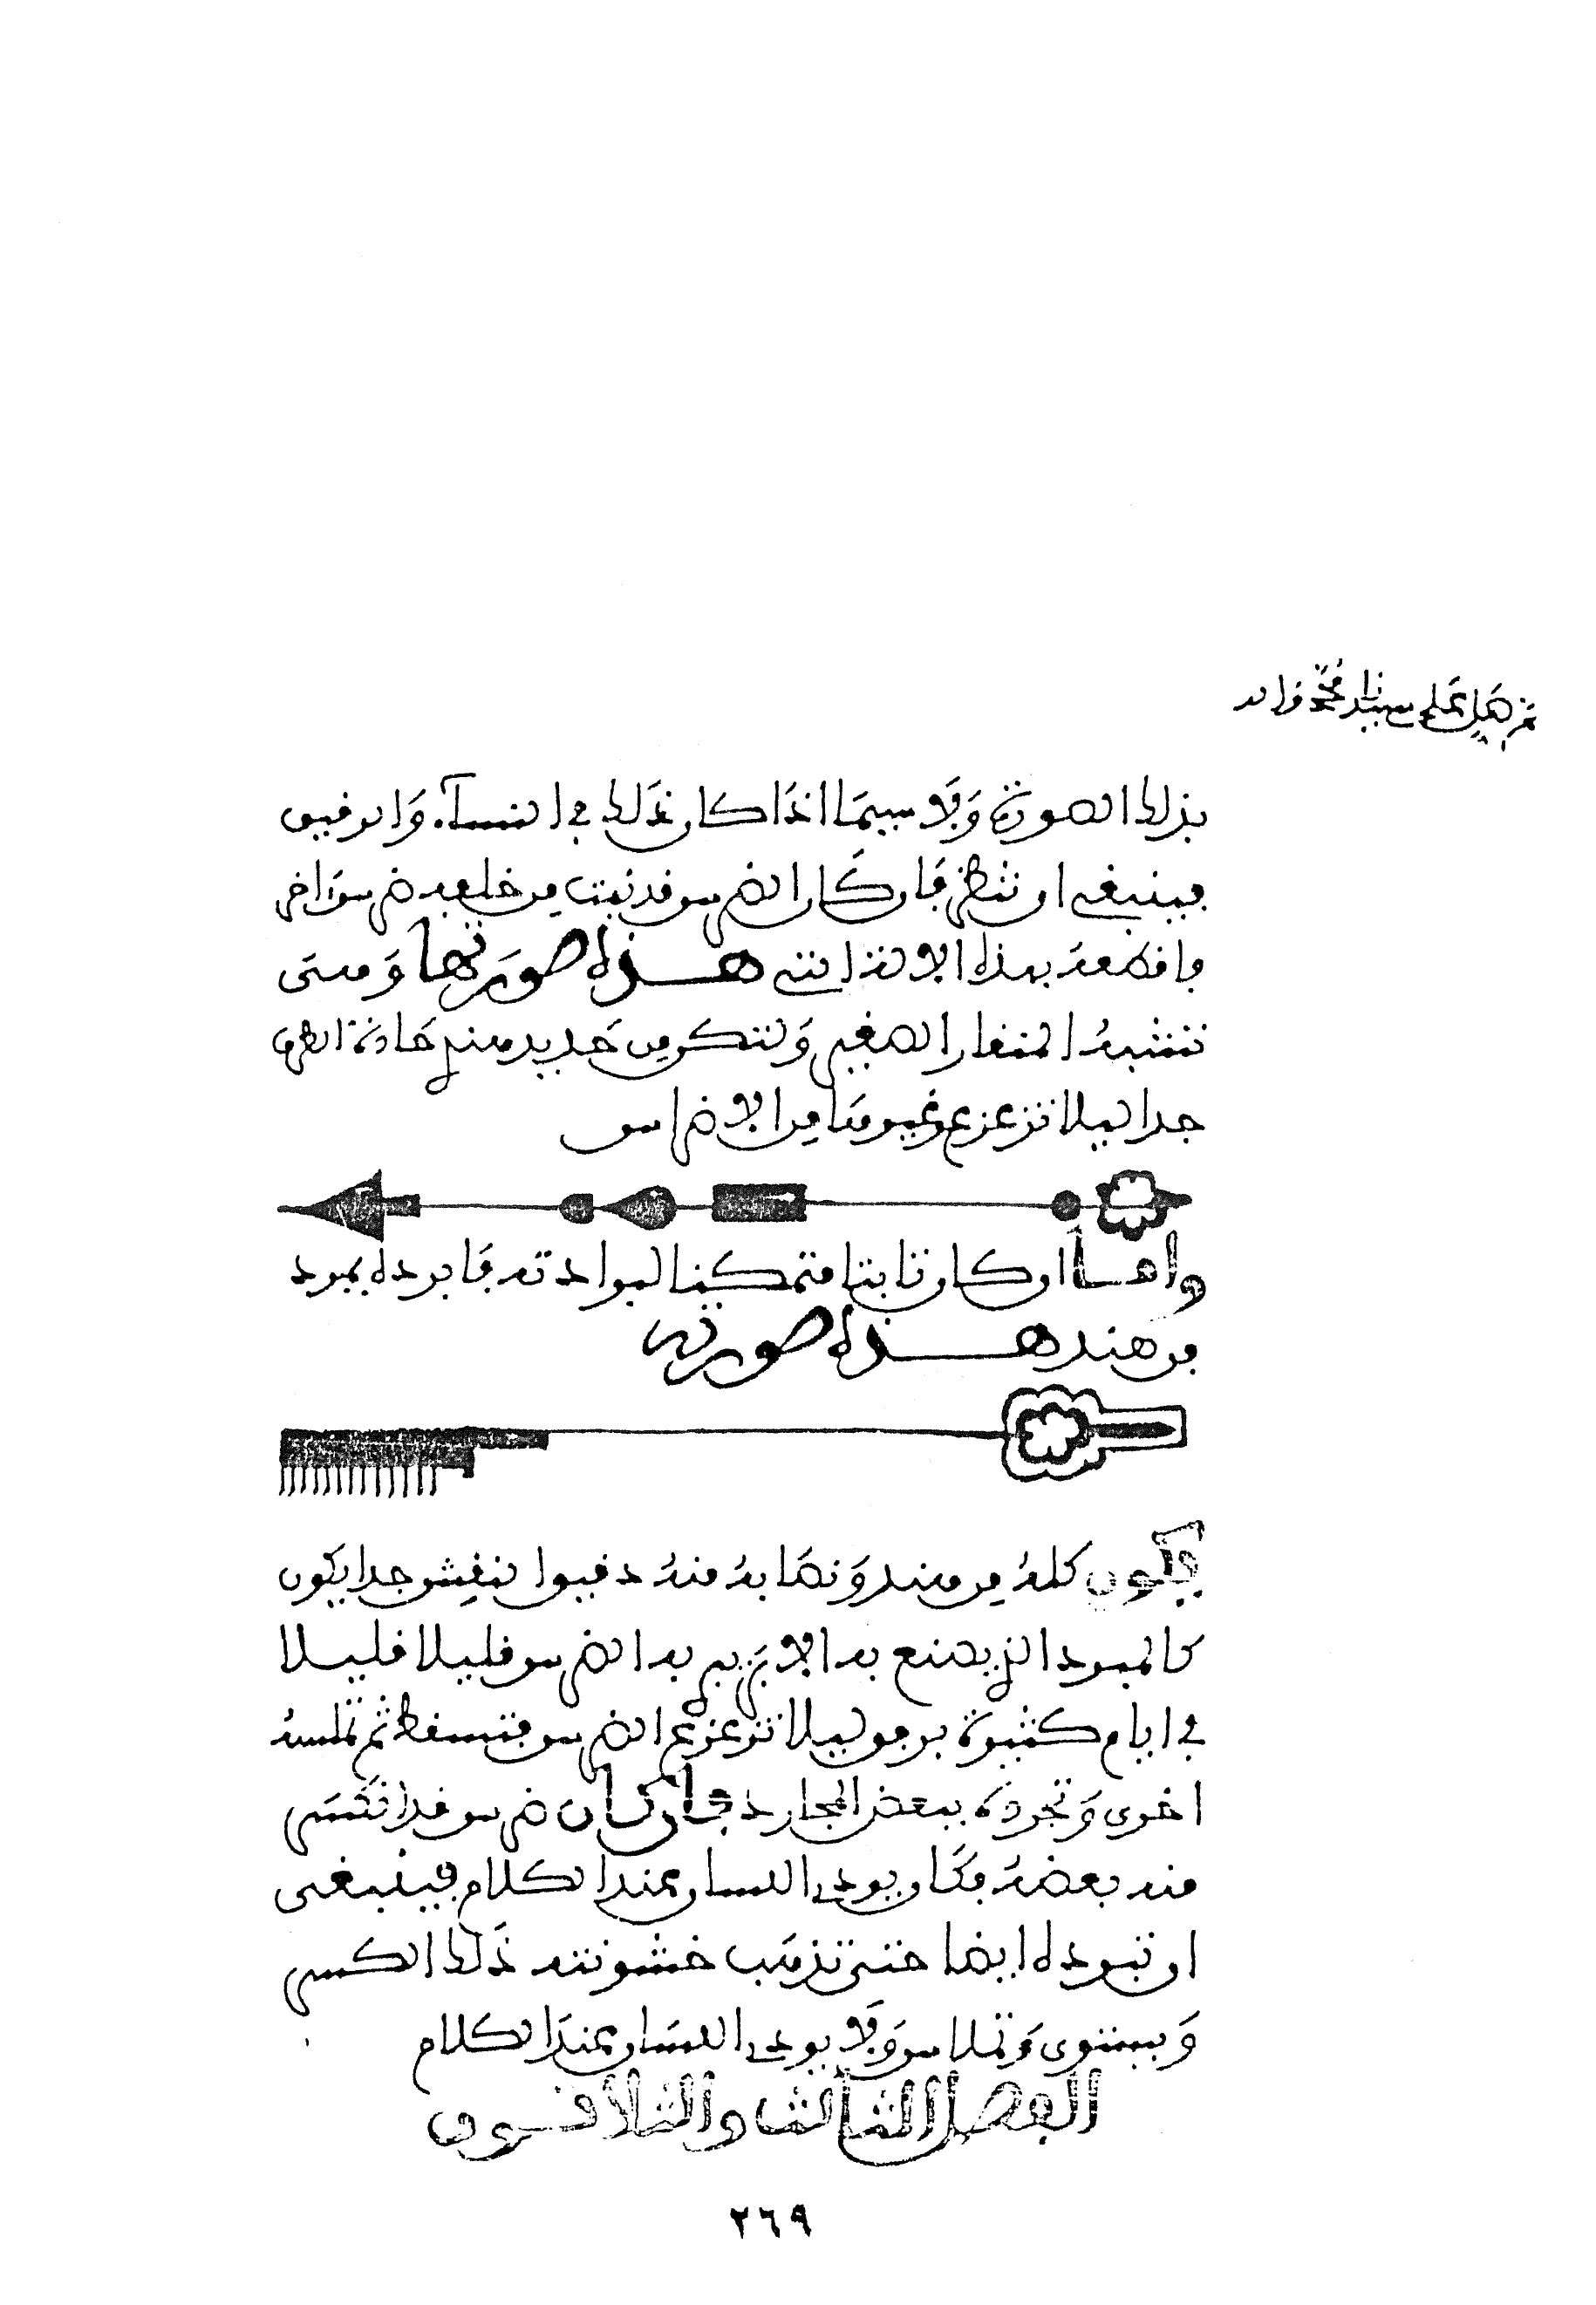 ثم صل على سيدنا محمد واله
بذلك الصورة ولا سيما اذا كان ذلك في النسآء والرفيق
فينبغي ان تنظر فان كان الضرس قد نبت من خلفه ضرس اخر
فاقطعه بهذه الالة التي هذه صورتها وهي
تشبه المنقار الصغير ولتكن من حديد هندي حادة الطرف
جدا ليلا تزعزع غيرها من الاضراس
واما ان كان ثابتا متمكنا لبرادته فابرده بمبرد
من هند هذه صورته
يكون كله من هند ونصابه منه دقيق النقش جدا يكون
كالمبرد الذي يصنع به الابر يبرد به الضرس قليلا قليلا
في ايام كثيرة برفق ليلا تزعزع الضرس فتسقط ثم تملسه
اخرى وتجرده ببعض المجارد فان كان ضرس قد انكسر
منه بعضه فكان يوذي اللسان عند الكلام فينبغي
ان تبرده ايضا حتى تذهب خشونته ذلك الكسر
ويستوى وتملاس ولا يوذي اللسان عند الكلام
الفصل الثالث والثلاثون
٢٦٩